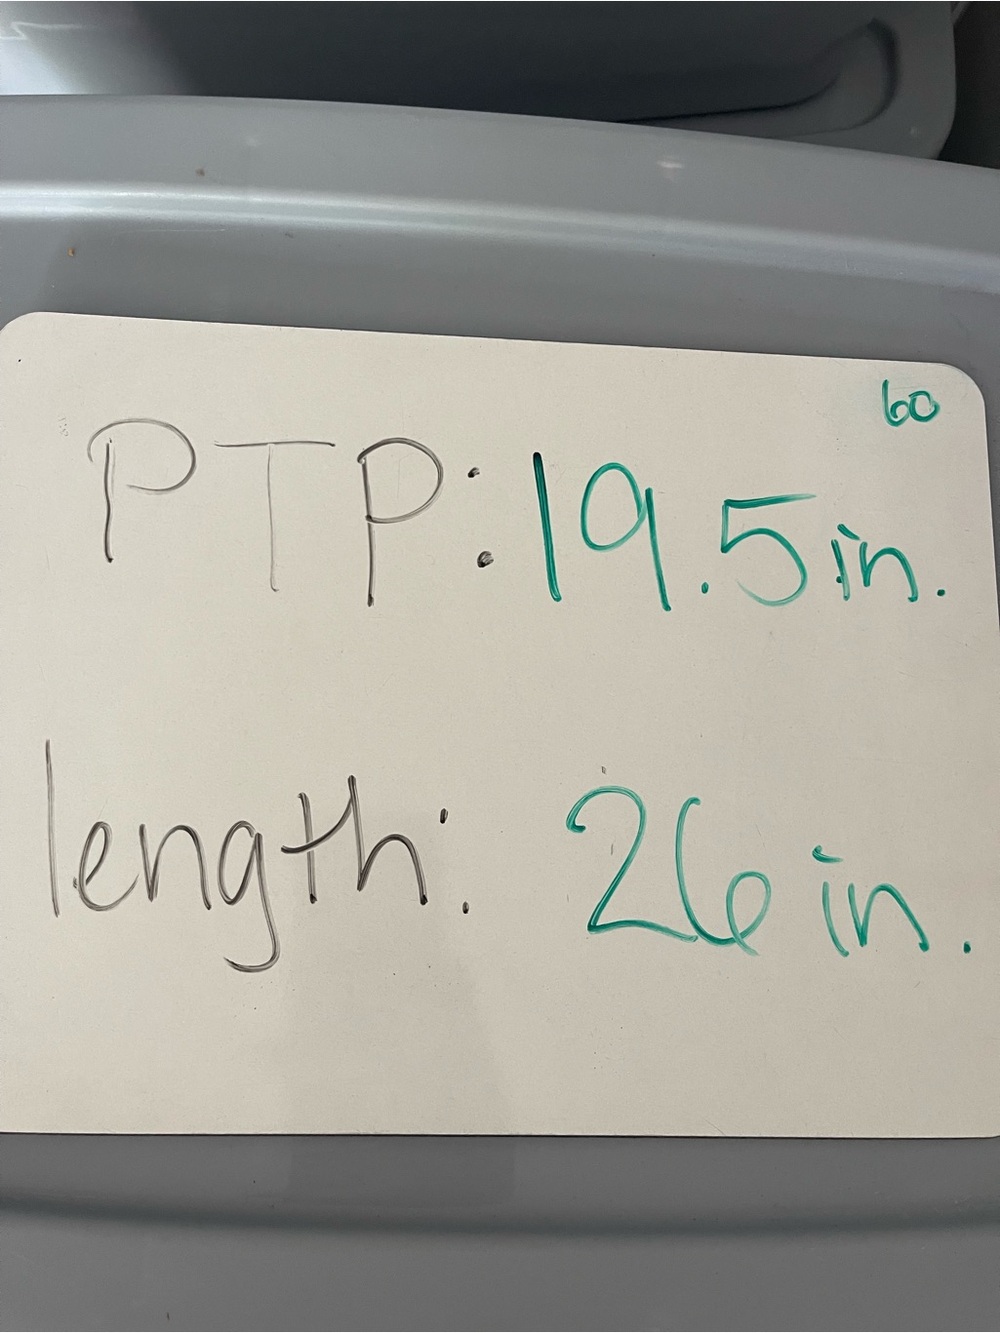 60
PTP: 19.5 in.
length: 26 in.